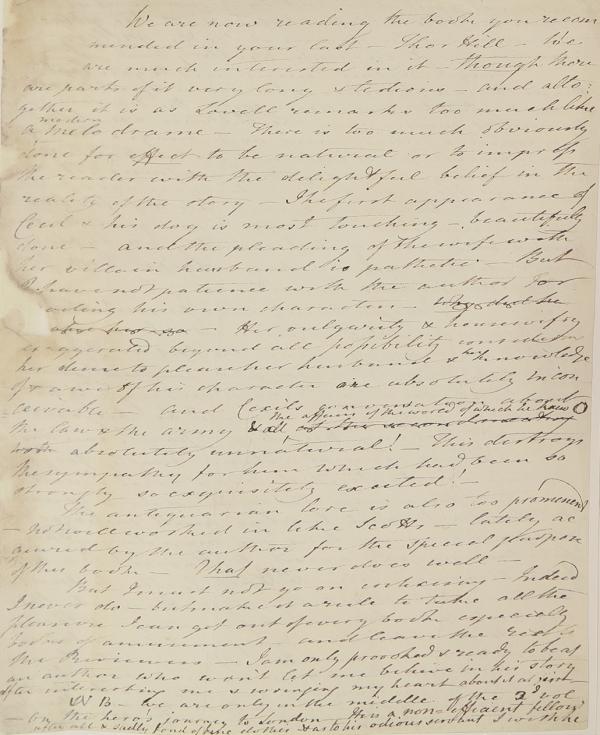 We are now reading the book you recom
mended in your last – Thor Hill – We
are much interested in it – though there
are parts of it very long & tedious – and alto-
gether it is as Lovell remarks too much like
modern
a melodrame – There is too much obviously
done for effect to be natural or to impress
the reader with the delightful belief in the
reality of the story – The first appearance of
Cecil & his dog is most touching – beautifully
done – and the pleading of the wife with
her villain husband is pathetic – But
I have not patience with the author for
his own character –
– Her vulgarity & housewifery
exaggerated beyond all possibility considering
her desire to please her husband & her knowledge
of & awe of his character are absolutely incon
ceivable – and Cecil's conversation about
the affairs of the world of which he knew O
the law & the army & all
absolutely unnatural! – This destroys
the sympathy for him which had been so
strongly so exquisitely excited!
The antiquarian lore is also too prominent
– not well worked in like Scott's – lately ac
quired by the author for the special purpose
of this book – That never does well –
But I must not go on – Indeed
I never do – but make it a rule to take all the
pleasure I can get out of every book especially
books of amusement – and leave the rest to
the Reviewers – I am only provoked & ready to beat
an author who won't let me believe in his story
after interesting me & wringing my heart about it at first
NB – We are only in the middle of the 2d vol
– on the hero's journey to London – He is a non-efficient fellow
after all & sadly fond of fine clothes & as to his odious servant I wish he